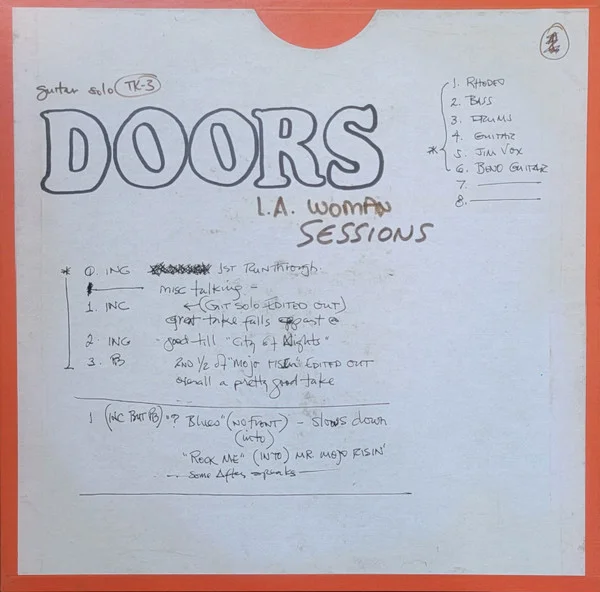 guitar solo TK-3
DOORS
L.A. WOMAN
SESSIONS
1. RHODES
2. BASS
3. DRUMS
4. GUITAR
* 5. JIM VOX
6. BEND GUITAR
7.
8.
* 0. ING 1ST RUNTHROUGH.
misc talking =
1. INC (GIT SOLO EDITED OUT)
great take falls apart
2. ING good till "City of Nights"
3. PB 2ND 1/2 of "MOJO RISIN" EDITED OUT
overall a pretty good take
1 (INC BUT PB) "? Blues" (NO FRONT) - SLOWS down
(into)
"ROCK ME" (INTO) MR. MOJO RISIN'
some After speaks